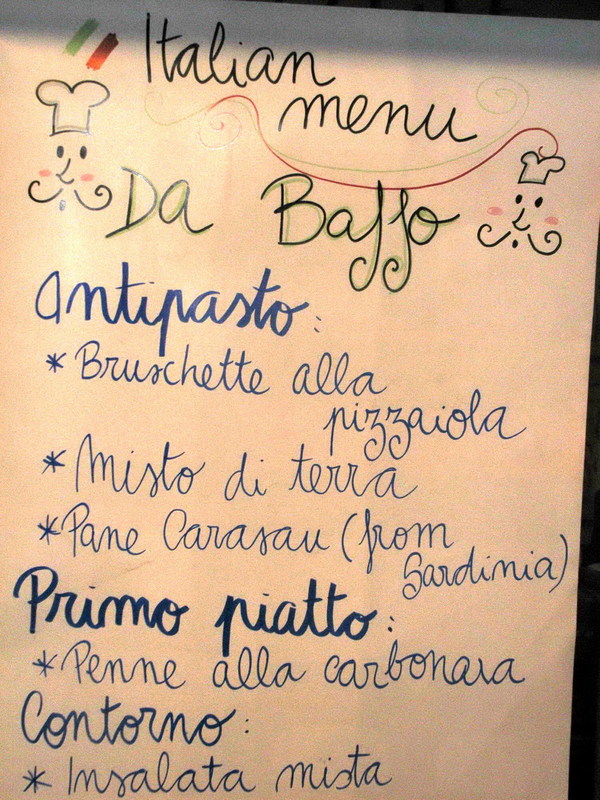 Italian
menu
Da Baffo
Antipasto:
* Bruschette alla
pizzaiola
* Misto di terra
* Pane Carasau (from
Sardinia)
Primo piatto:
* Penne alla carbonara
Contorno:
* Insalata mista